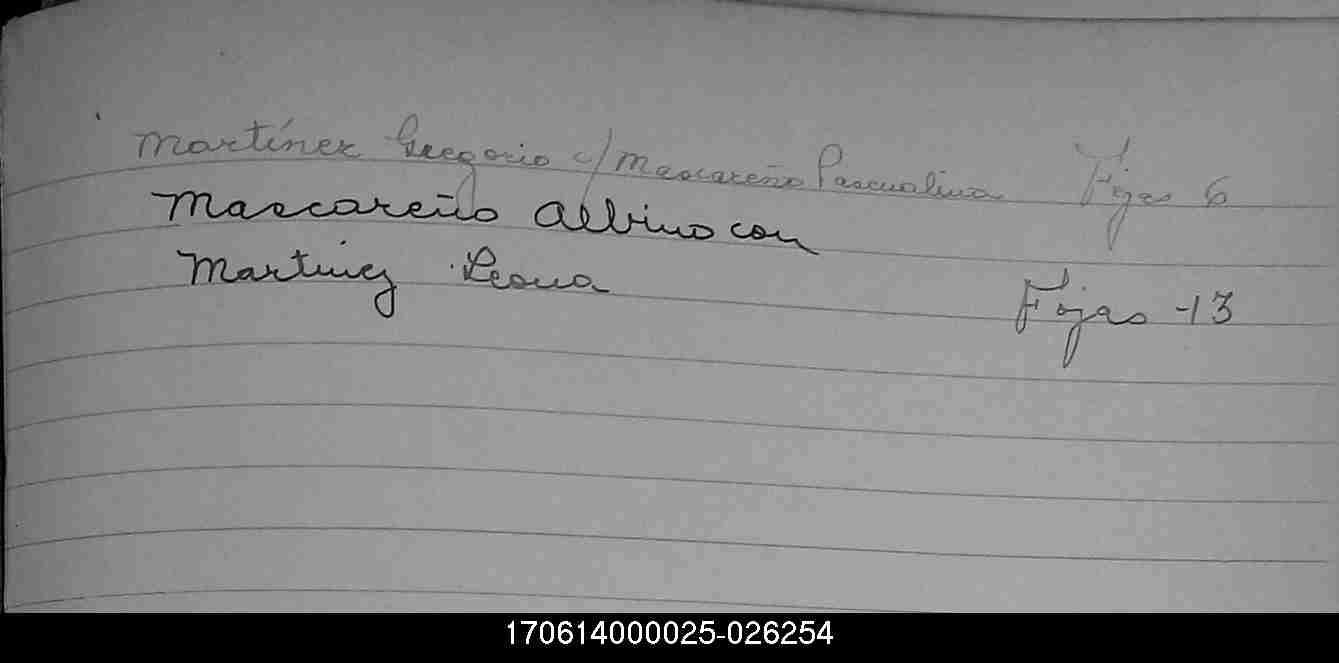 Martínez Gregorio c/ Mascareño Pascualina Fojas 6
Mascareño Albino con
Martínez Leona Fojas 13
170614000025-026254